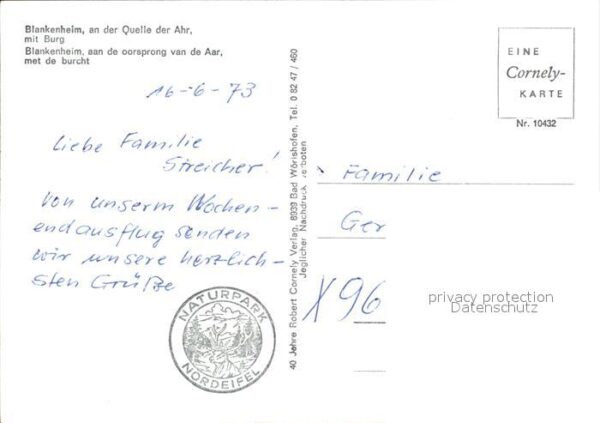 Blankenheim, an der Quelle der Ahr,
mit Burg
Blankenheim, aan de oorsprong van de Aar,
met de burcht
16-6-73
Liebe Familie
Streicher!
Von unserm Wochen-
endausflug senden
wir unsere herzlich-
sten Grüße
NATURPARK
NORDEIFEL
40 Jahre Robert Cornely Verlag, 8939 Bad Wörishofen, Tel. 0 82 47 / 460
Jeglicher Nachdruck verboten
EINE
Cornely-
KARTE
Nr. 10432
Familie
Ger
X96
privacy protection
Datenschutz